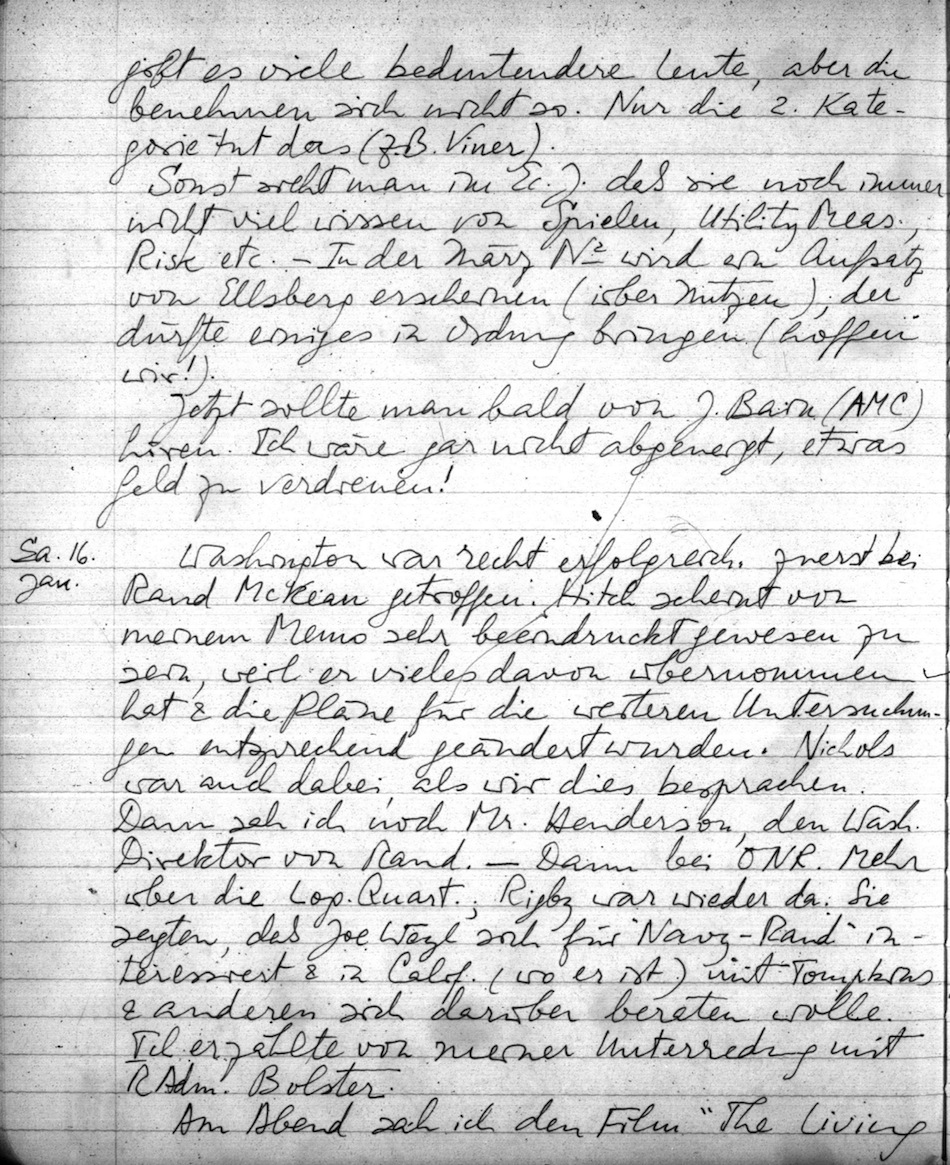 gibt es viele bedeutendere Leute, aber die
benehmen sich nicht so. Nur die 2. Kate-
gorie tut das (z.B. Viner).
Sonst sieht man im Ec. J. daß sie noch immer
nicht viel wissen von Spielen, Utility Meas.,
Risk etc. – In der März Nº wird ein Aufsatz
von Ellsberg erscheinen (über Nutzen), der
dürfte einiges in Ordnung bringen (hoffen
wir!).
Jetzt sollte man bald von J. Bain (AMC)
hören. Ich wäre gar nicht abgeneigt, etwas
Geld zu verdienen!
Sa. 16.
Jan.
Washington war recht erfolgreich. Zuerst bei
Rand McKean getroffen. Hitch scheint von
meinem Memo sehr beeindruckt gewesen zu
sein, weil er vieles davon übernommen
hat & die Pläne für die weiteren Untersuchun-
gen entsprechend geändert wurden. Nichols
war auch dabei, als wir dies besprachen.
Dann sah ich noch Mr. Henderson, den Wash.
Direktor von Rand. — Dann bei ONR. Mehr
über die Log. Quart.; Rigby war wieder da. Sie
sagten, daß Joe Weyl sich für "Navy-Rand" in-
teressiert & in Calif. (wo er ist) mit Tompkins
& anderen sich darüber beraten wolle.
Ich erzählte von meiner Unterredung mit
RAdm. Bolster.
Am Abend sah ich den Film "The Living